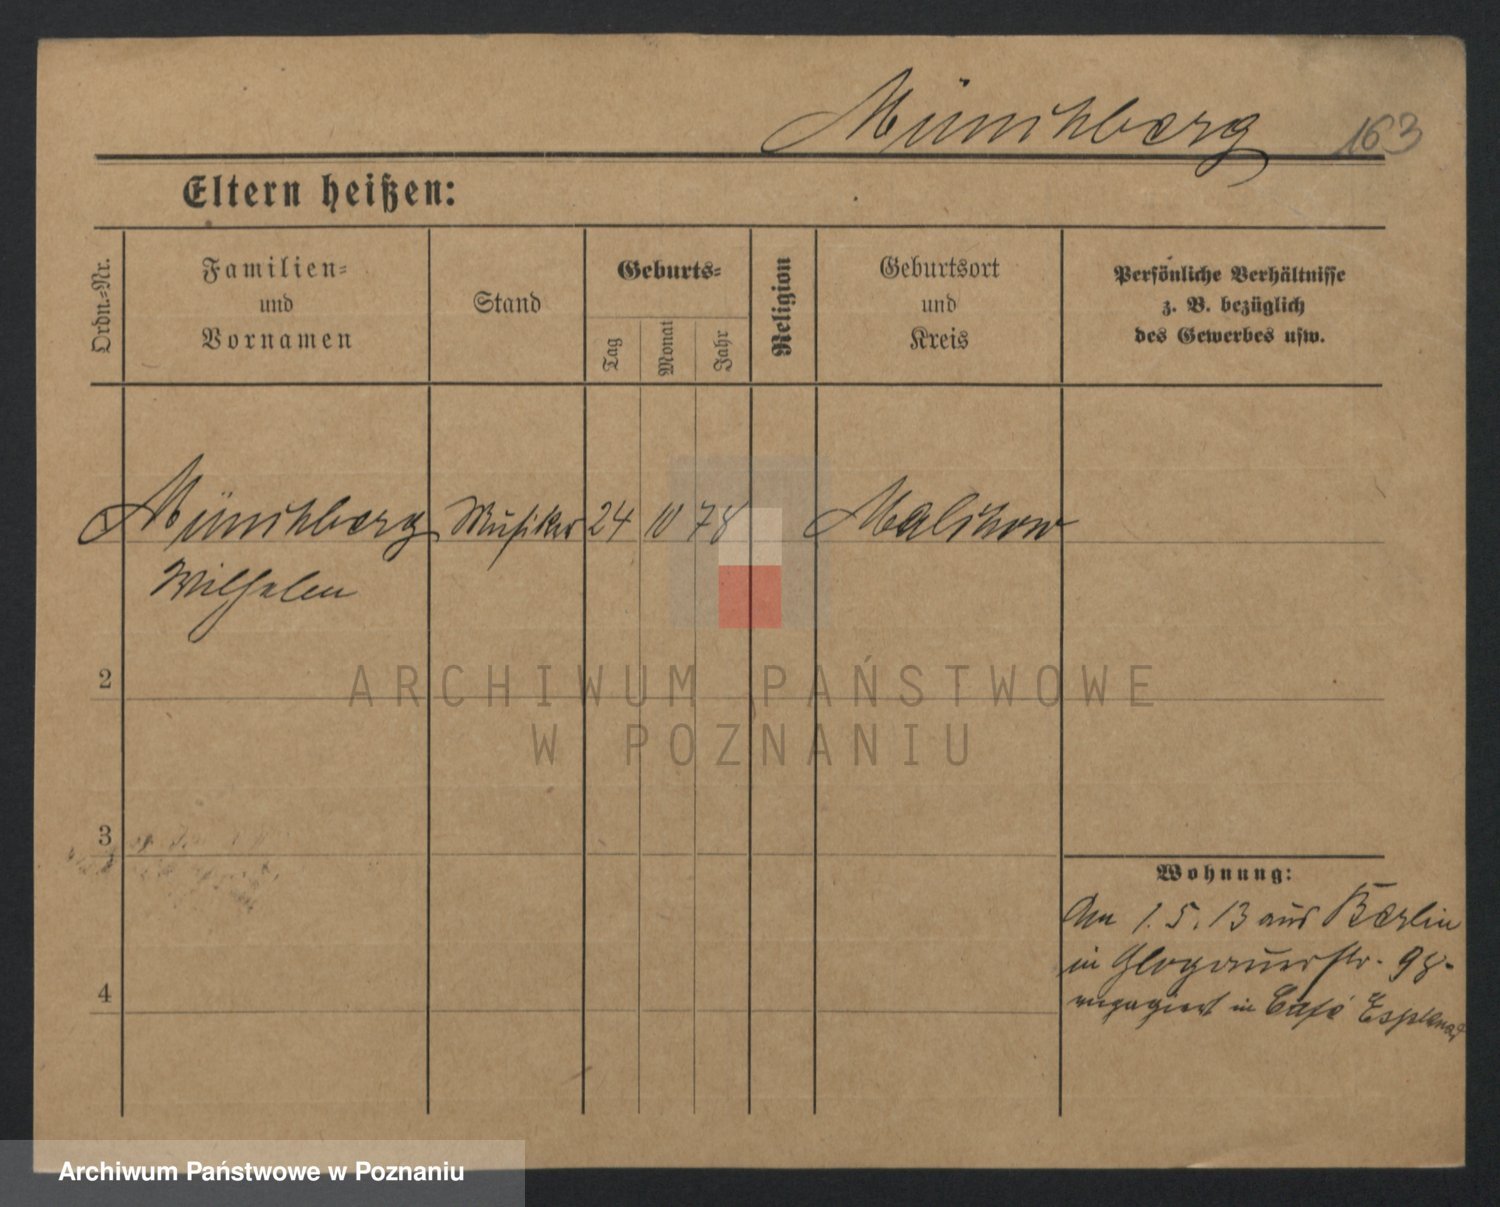 Münchberg 163
Eltern heißen:
Ordn.-Nr.
Familien-
und
Vornamen
Stand
Geburts-
Tag
Monat
Jahr
Religion
Geburtsort
und
Kreis
Persönliche Verhältnisse
z. B. bezüglich
des Gewerbes usw.
Münchberg Musiker 24 10 78 Malchow
Wilhelm
2
3
4
Wohnung:
Am 1.5.13 aus Berlin
in Glogauerstr. 98-
engagiert in Café Esplanad
ARCHIWUM PAŃSTWOWE
W POZNANIU
Archiwum Państwowe w Poznaniu